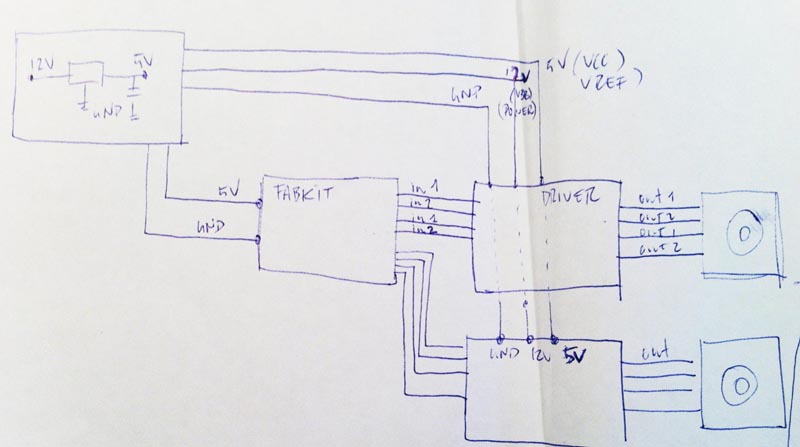 12V
5V
GND
5V (VCC)
VREF)
12V
GND
(POWER)
5V
GND
FABKIT
in 1
in 2
in 1
in 2
DRIVER
out 1
out 2
out 1
out 2
GND 12V 5V
out